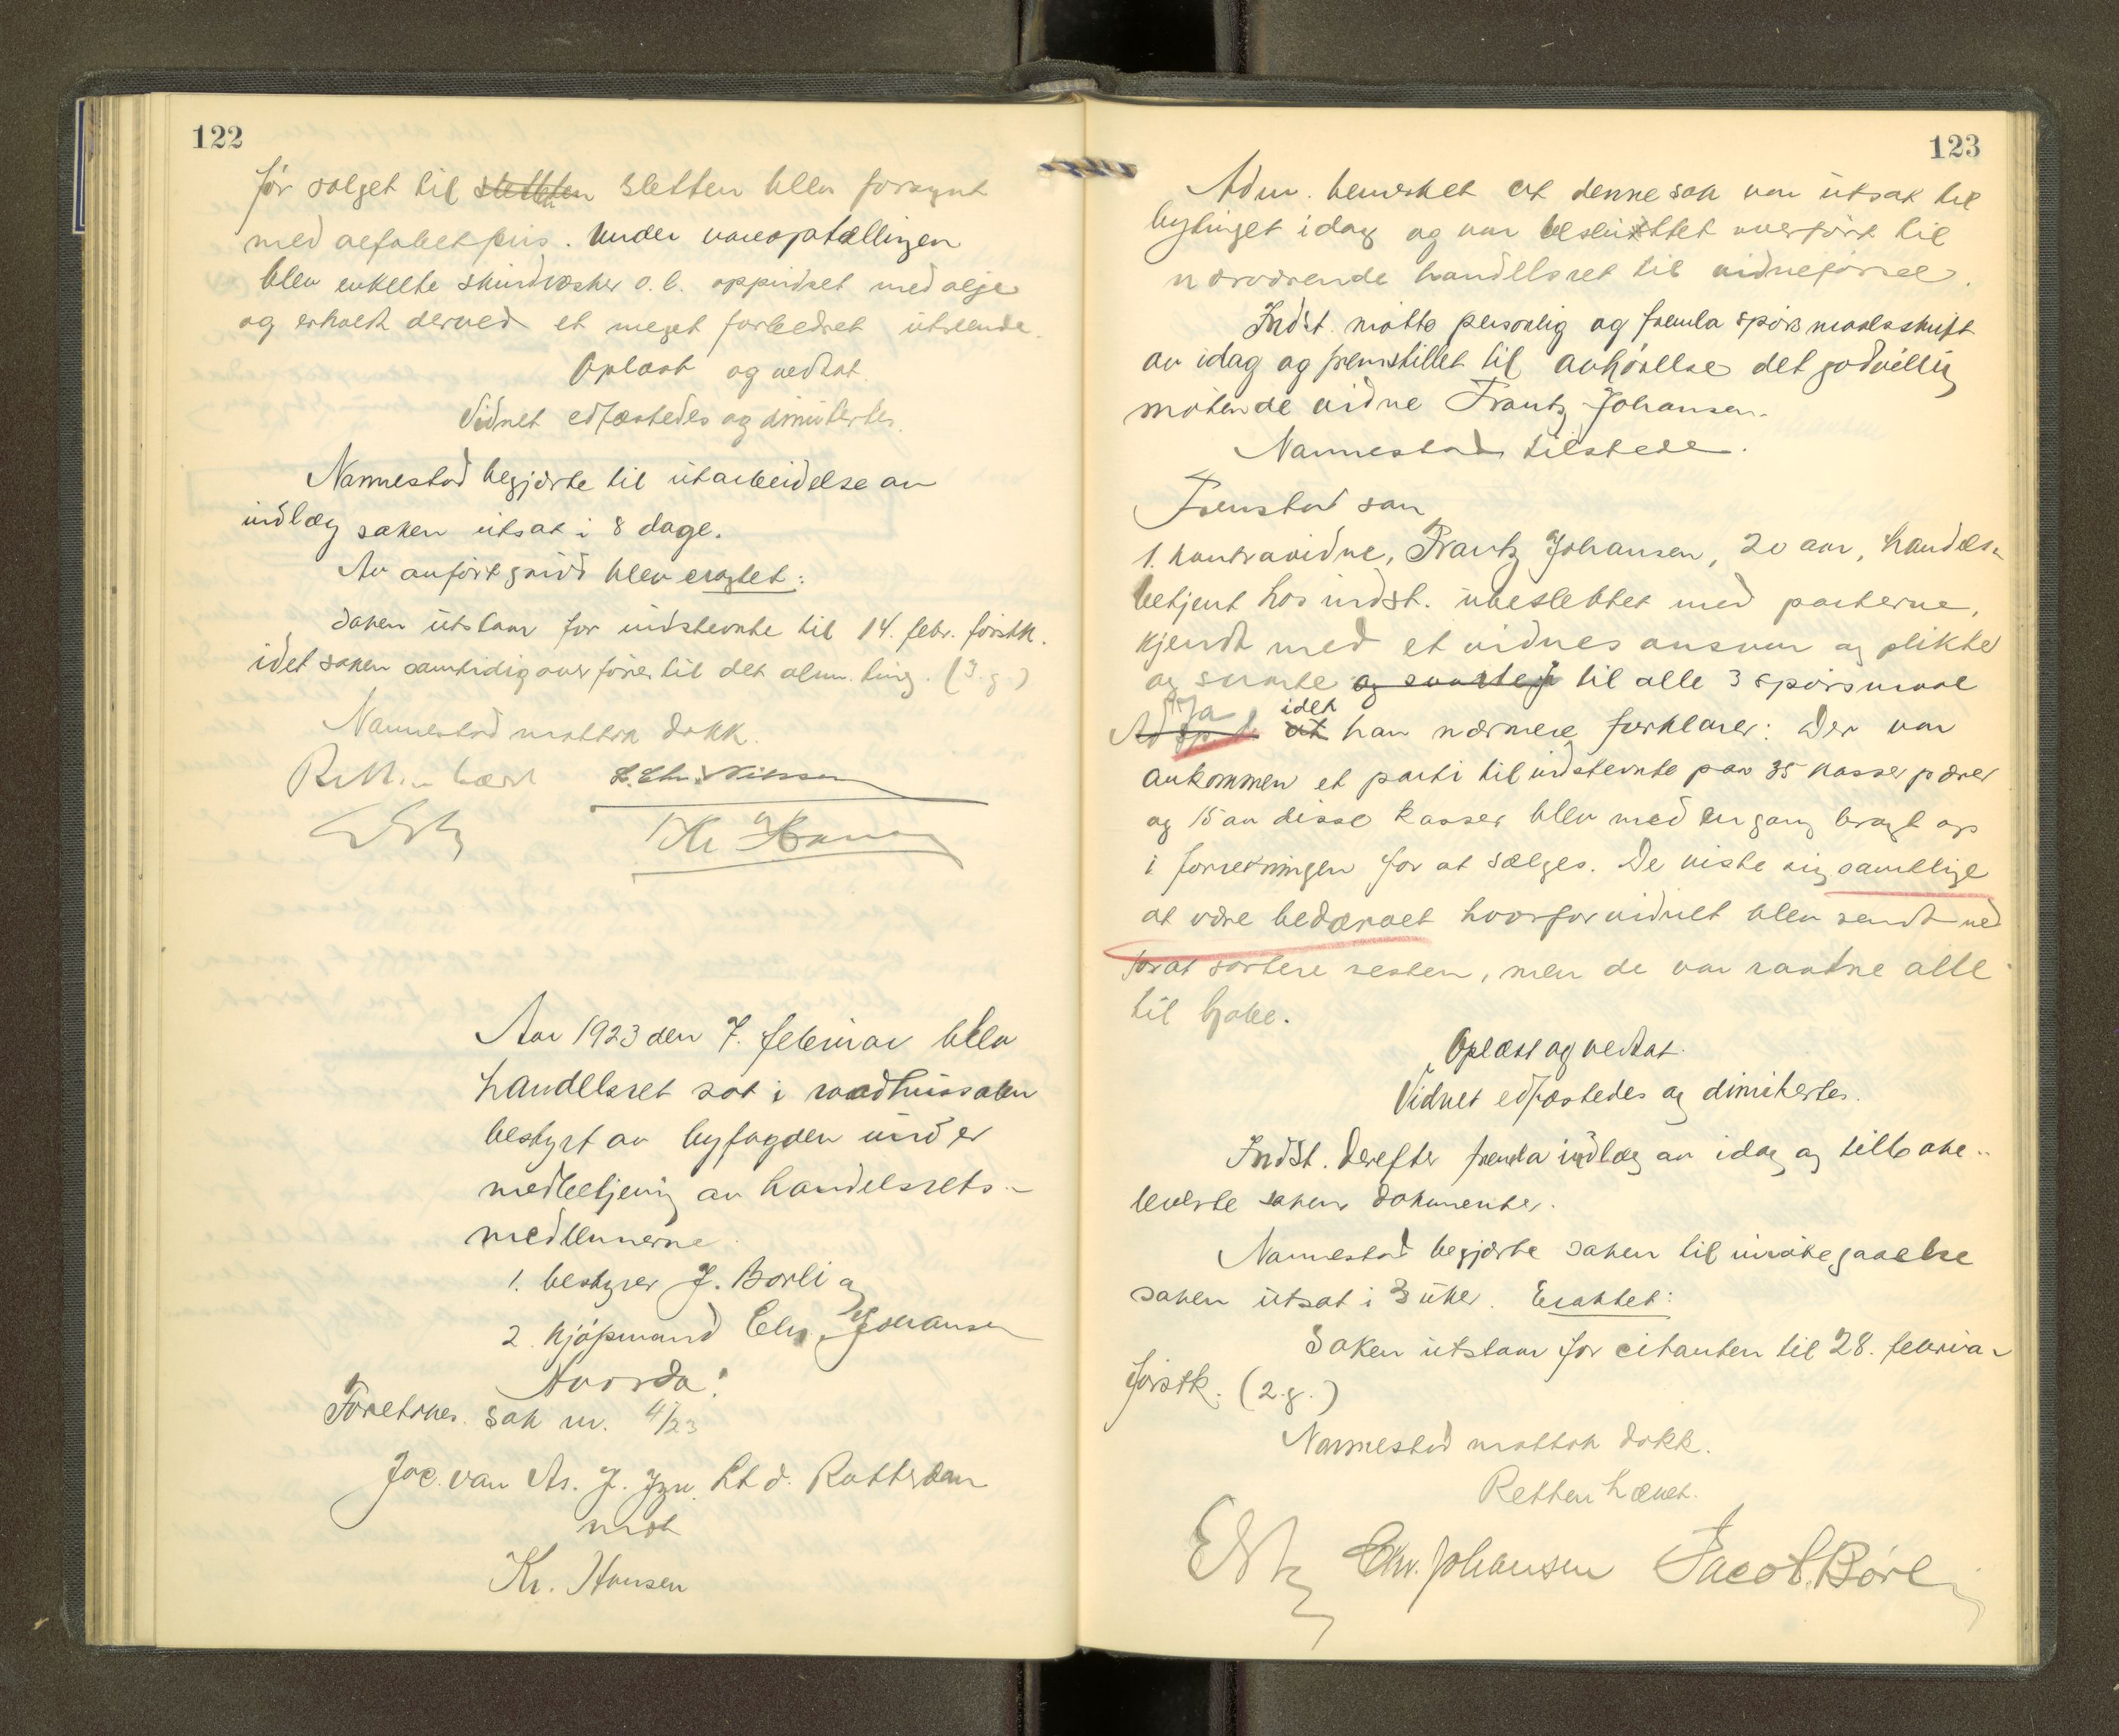 122
før salget til sletten sletten blev forsynt
med alfabetpris. Under vareoptællingen
blev enkelte skindvæsker o.l. oppudset med olje
og erholdt derved et meget forbedret utseende.
Oplæst og vedtat.
Vidnet edfæstedes og dimitertes.
Nannestad begjærte til utarbeidelse av
indlæg saken utsat i 8 dage.
Av anført grund blev eragtet:
Saken utstaar for indstevnte til 14. febr. førstk.
idet saken samtidig overføres til det alm. ting. (3.g.)
Nannestad mottok dokk.
Retten hævet
L. Chr. Nilssen
Aar 1923 den 7. februar blev
handelsret sat i raadhussalen
bestyrt av byfogden under
medbetjening av handelsrets-
medlemmerne
1. bestyrer J. Borli og
2. kjøpmand Chr. Johansen
Hvorda:
Foretokes sak nr. 4/23
Jac. van As. J. Jzn. Ltd. Rotterdam
mot
Kr. Hansen
123
Adm. bemerket at denne sak var utsat til
bytinget idag og var besluttet overført til
nærværende handelsret til vidneførsel.
Indst. møtte personlig og fremla spørsmaalsskrift
av idag og fremstillet til avhørelse det godvillig
møtende vidne Frantz Johansen.
Nannestad tilstede.
Fremstod som
1. kontravidne, Frantz Johansen, 20 aar, handels-
betjent hos indst. ubeslektet med parterne,
kjendt med et vidnes ansvar og plikter
og svarte og svarte til alle 3 spørsmaal
Ja idet
Ad sp. 1. at han nærmere forklarer: Der var
ankommen et parti til indstevnte paa 35 kasser pærer
og 15 av disse kasser blev med en gang bragt op
i forretningen for at sælges. De viste sig samtlige
at være bedærvet hvorfor vidnet blev sendt ned
forat sortere resten, men de var raatne alle
til hobe.
Oplæst og vedtat.
Vidnet edfæstedes og dimitertes.
Indst. derefter fremla indlæg av idag og tilbake-
leverte sakens dokumenter.
Nannestad begjærte saken til imøtegaaelse
saken utsat i 3 uker. Eraktet:
Saken utstaar for citanten til 28. februar
førstk. (2.g.)
Nannestad mottok dokk.
Retten hævet.
Chr. Johansen Jacob Børli